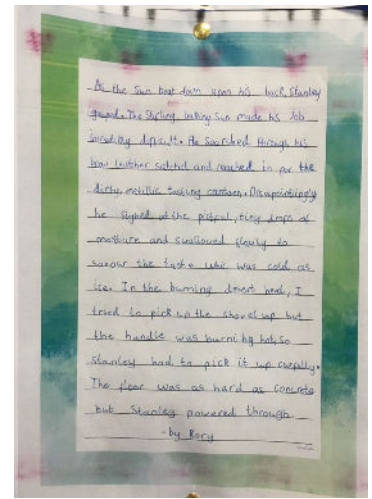 As the Sun beat down upon his back, Stanley
gasped. The Stifling baking Sun made his Job
incredibly difficult. He Searched through his
leather satchel and reached in for the
dirty, metallic tasting canteen. Disapointingly
he sighed at the pitiful, tiny drops of
moisture and swallowed slowly to
savour the taste was cold as
ice. In the burning desert heat, I
tried to pick up the shovel up but
the handle was burning hot, so
Stanley had to pick it up carefully.
The floor was as hard as concrete
but Stanley powered through.
- by Rory